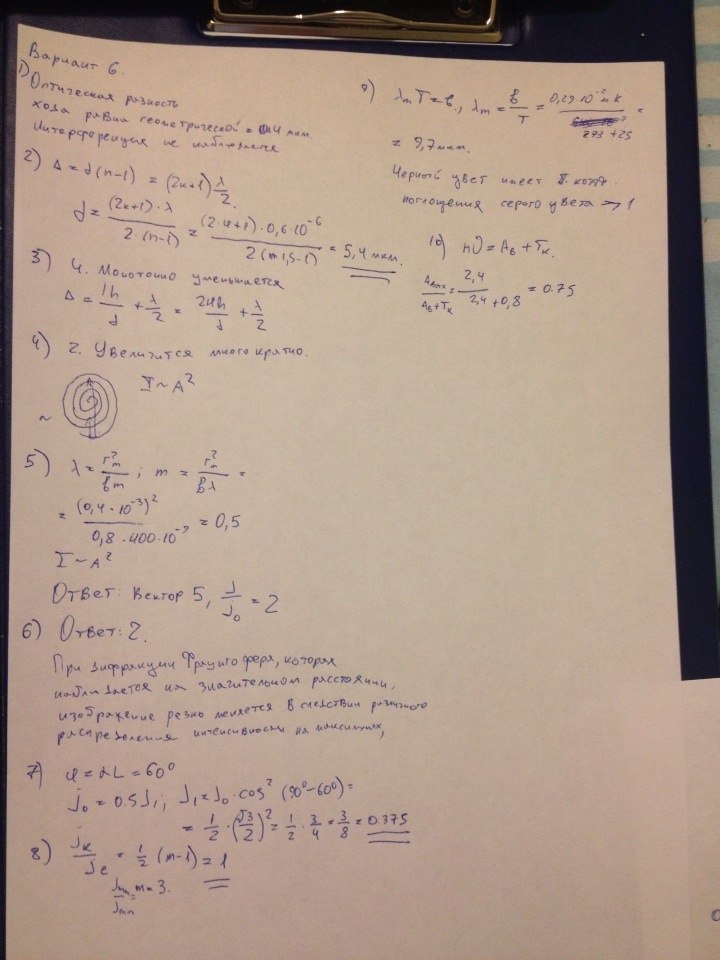 Вариант 6.
1) Оптическая разность
хода равна геометрической = 0,4 мкм.
Интерференция не наблюдается
2) Δ = d(n-1) = (2k+1) λ/2.
d = (2k+1)·λ / 2(n-1) = (2·4+1)·0,6·10^-6 / 2(1,5-1) = 5,4 мкм.
3) 4. Монотонно уменьшается
Δ = lh/d + λ/2 = 2Hh/d + λ/2
4) 2. Увеличится многократно.
I ~ A^2
~
5) λ = r_m^2 / bm ; m = r_m^2 / bλ =
= (0,4·10^-3)^2 / 0,8·400·10^-9 = 0,5
I ~ A^2
Ответ: Вектор 5, J/J_0 = 2
6) Ответ: 2.
При дифракции Фраунгофера, которая
наблюдается на значительном расстоянии,
изображение резко меняется в следствии различного
распределения интенсивности на максимумах,
7) φ = αL = 60°
J_0 = 0.5J_i ; J_1 = J_0·cos^2 (90°-60°) =
= 1/2 · (√3/2)^2 = 1/2 · 3/4 = 3/8 = 0.375
8) J_к/J_е = 1/2 (m-1) = 1
m = 3.
9) λ_m T = b., λ_m = b/T = 0,29·10^-2 м К / 273+25 =
= 9,7 мкм.
Черный цвет имеет
поглощения серого цвета → 1
10) hν = A_в + T_к.
A_в+T_к = 2,4 / 2,4+0,8 = 0.75